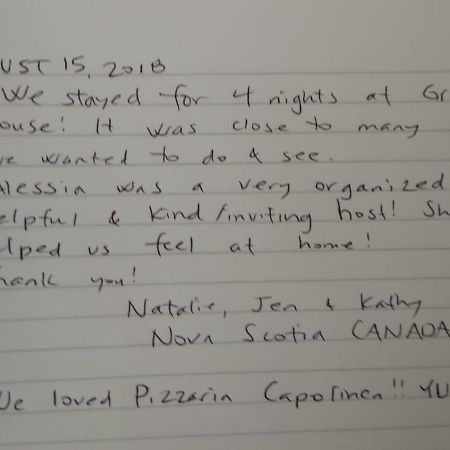 UST 15, 2018
We stayed for 4 nights at Gr
ouse! It was close to many
ve wanted to do & see.
lessia was a very organized
elpful & kind/inviting host! Sh
lped us feel at home!
hank you!
Natalie, Jen & Kathy
Nova Scotia CANADA
We loved Pizzaria Capolinea!! YU